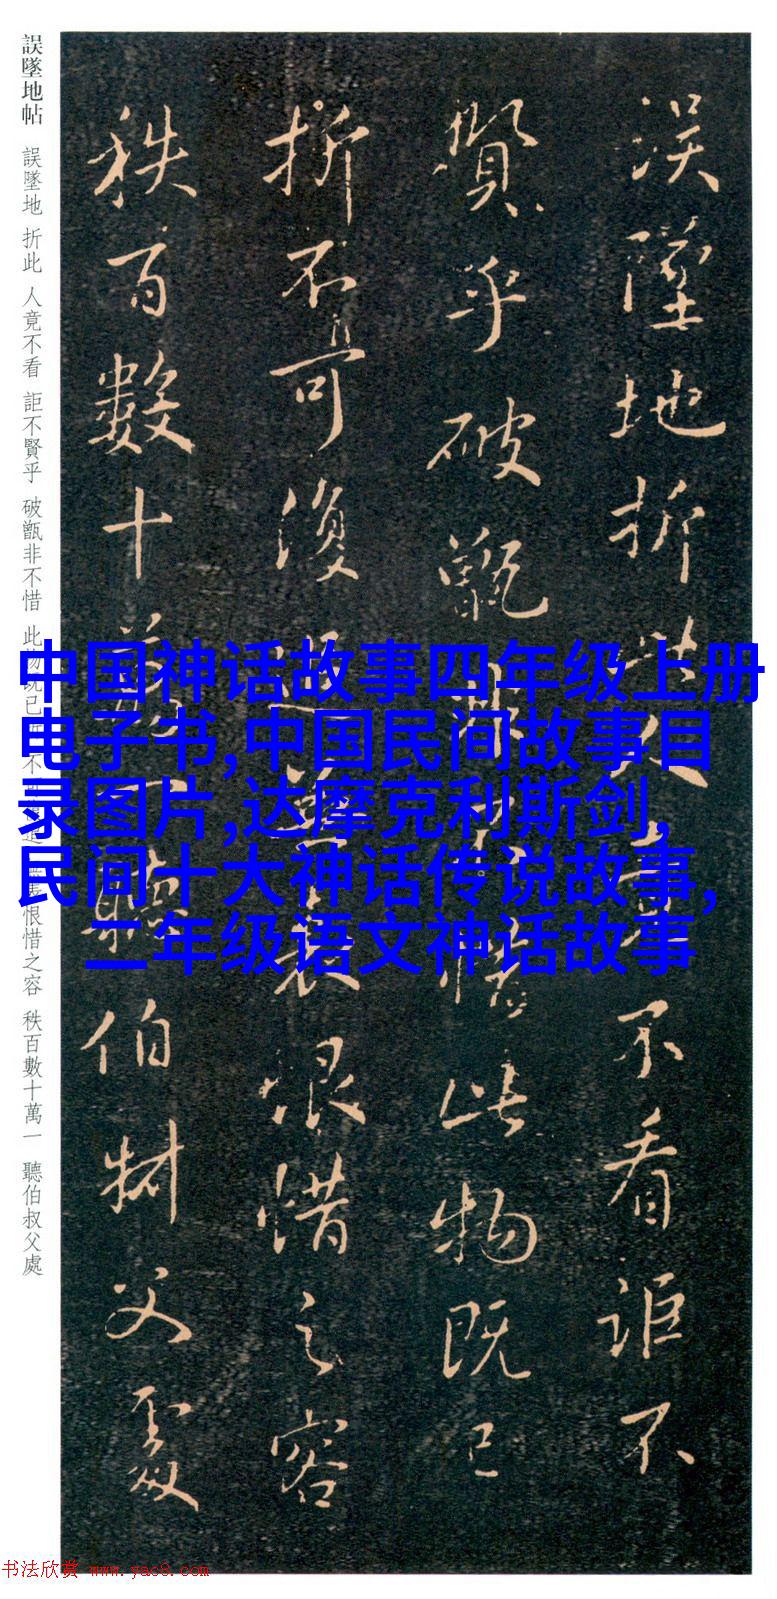 误墜地折此人竟不看詎不
賢乎破甑非不惜此物既已
折不可復追無喪恨惜之容
秩百數十萬一聽伯叔父處
誤墜地帖 誤墜地 折此 人竟不看 詎不賢乎 破甑非不惜 此物既已 不 恨惜之容 秩百數十萬一 聽伯叔父處
中国神话故事四年级上册
电子书,中国民间故事目
录图片,达摩克利斯剑,
民间十大神话传说故事,
二年级语文神话故事
书法欣赏 www.yac8.com